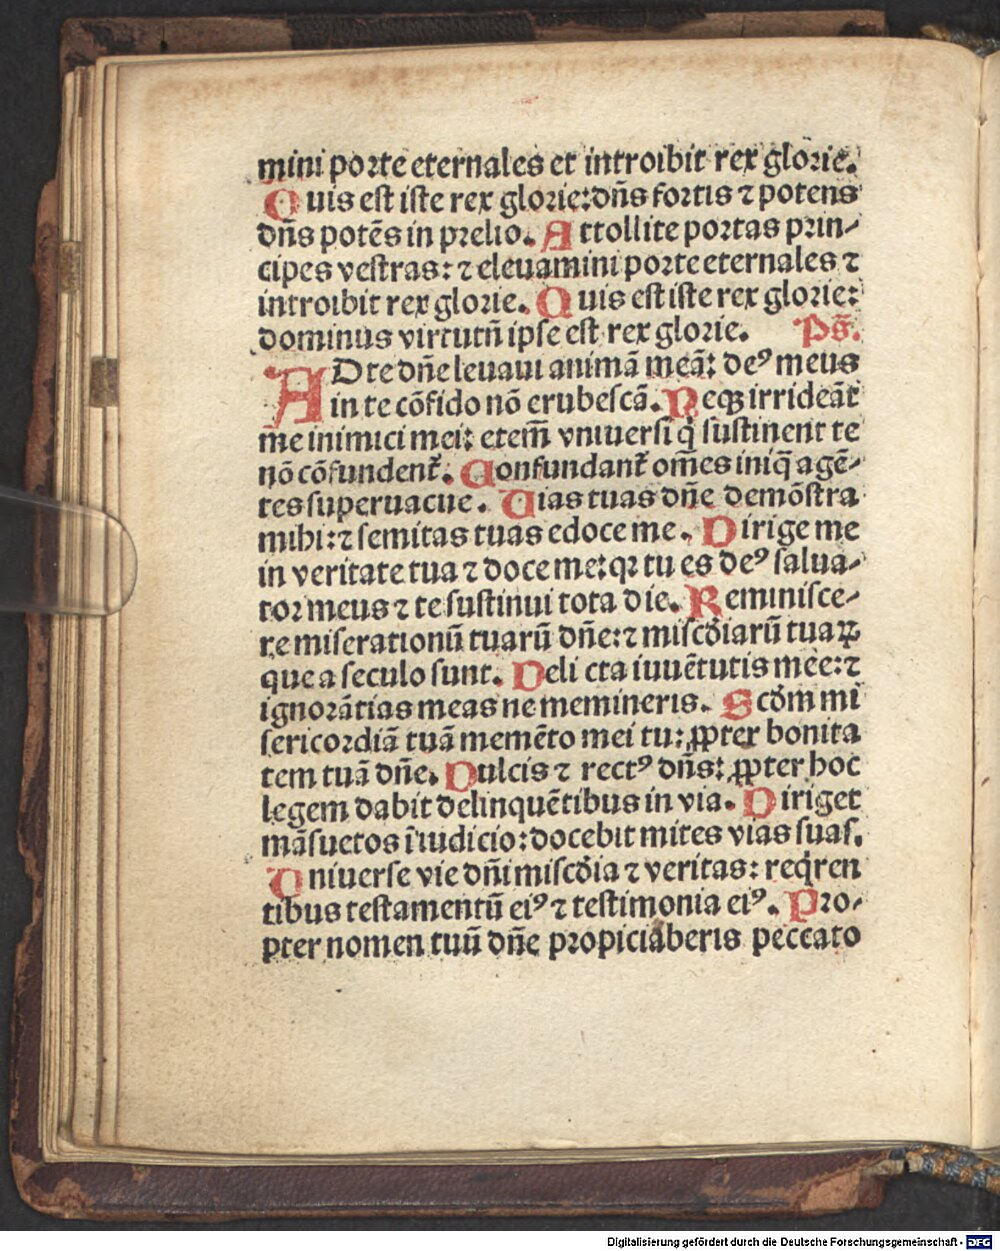 mini porte eternales et introibit rex glorie.
Quis est iste rex glorie: dn̄s fortis ⁊ potens
dn̄s potēs in prelio. Attollite portas prin-
cipes vestras: ⁊ elevamini porte eternales ⁊
introibit rex glorie. Quis est iste rex glorie:
dominus virtutū ipse est rex glorie. Ps̄.
AD te dn̄e levavi animā meā: deꝰ meus
in te cōfido nō erubescā. Neqꝫ irrideāt
me inimici mei: etem̄ vniversi q̇ sustinent te
nō cōfundent̄. Confundant̄ om̄es iniq̄ agē-
tes supervacue. Vias tuas dn̄e demōstra
mihi: ⁊ semitas tuas edoce me. Dirige me
in veritate tua ⁊ doce me: qꝛ tu es deꝰ salua-
tor meus ⁊ te sustinui tota die. Reminisce-
re miserationū tuarū dn̄e: ⁊ misc̄diarū tuaꝝ
que a seculo sunt. Delicta iuuētutis mee: ⁊
ignorātias meas ne memineris. Scd̄m mi
sericordiā tuā memēto mei tu: ꝓpter bonita
tem tuā dn̄e. Dulcis ⁊ rectꝰ dn̄s: ꝓpter hoc
legem dabit delinquētibus in via. Diriget
māsuetos ī iudicio: docebit mites vias suas.
Vniuerse vie dn̄i misc̄dia ⁊ veritas: req̇ren
tibus testamentū eiꝰ ⁊ testimonia eiꝰ. Pro-
pter nomen tuū dn̄e propiciaberis peccato
Digitalisierung gefördert durch die Deutsche Forschungsgemeinschaft - DFG